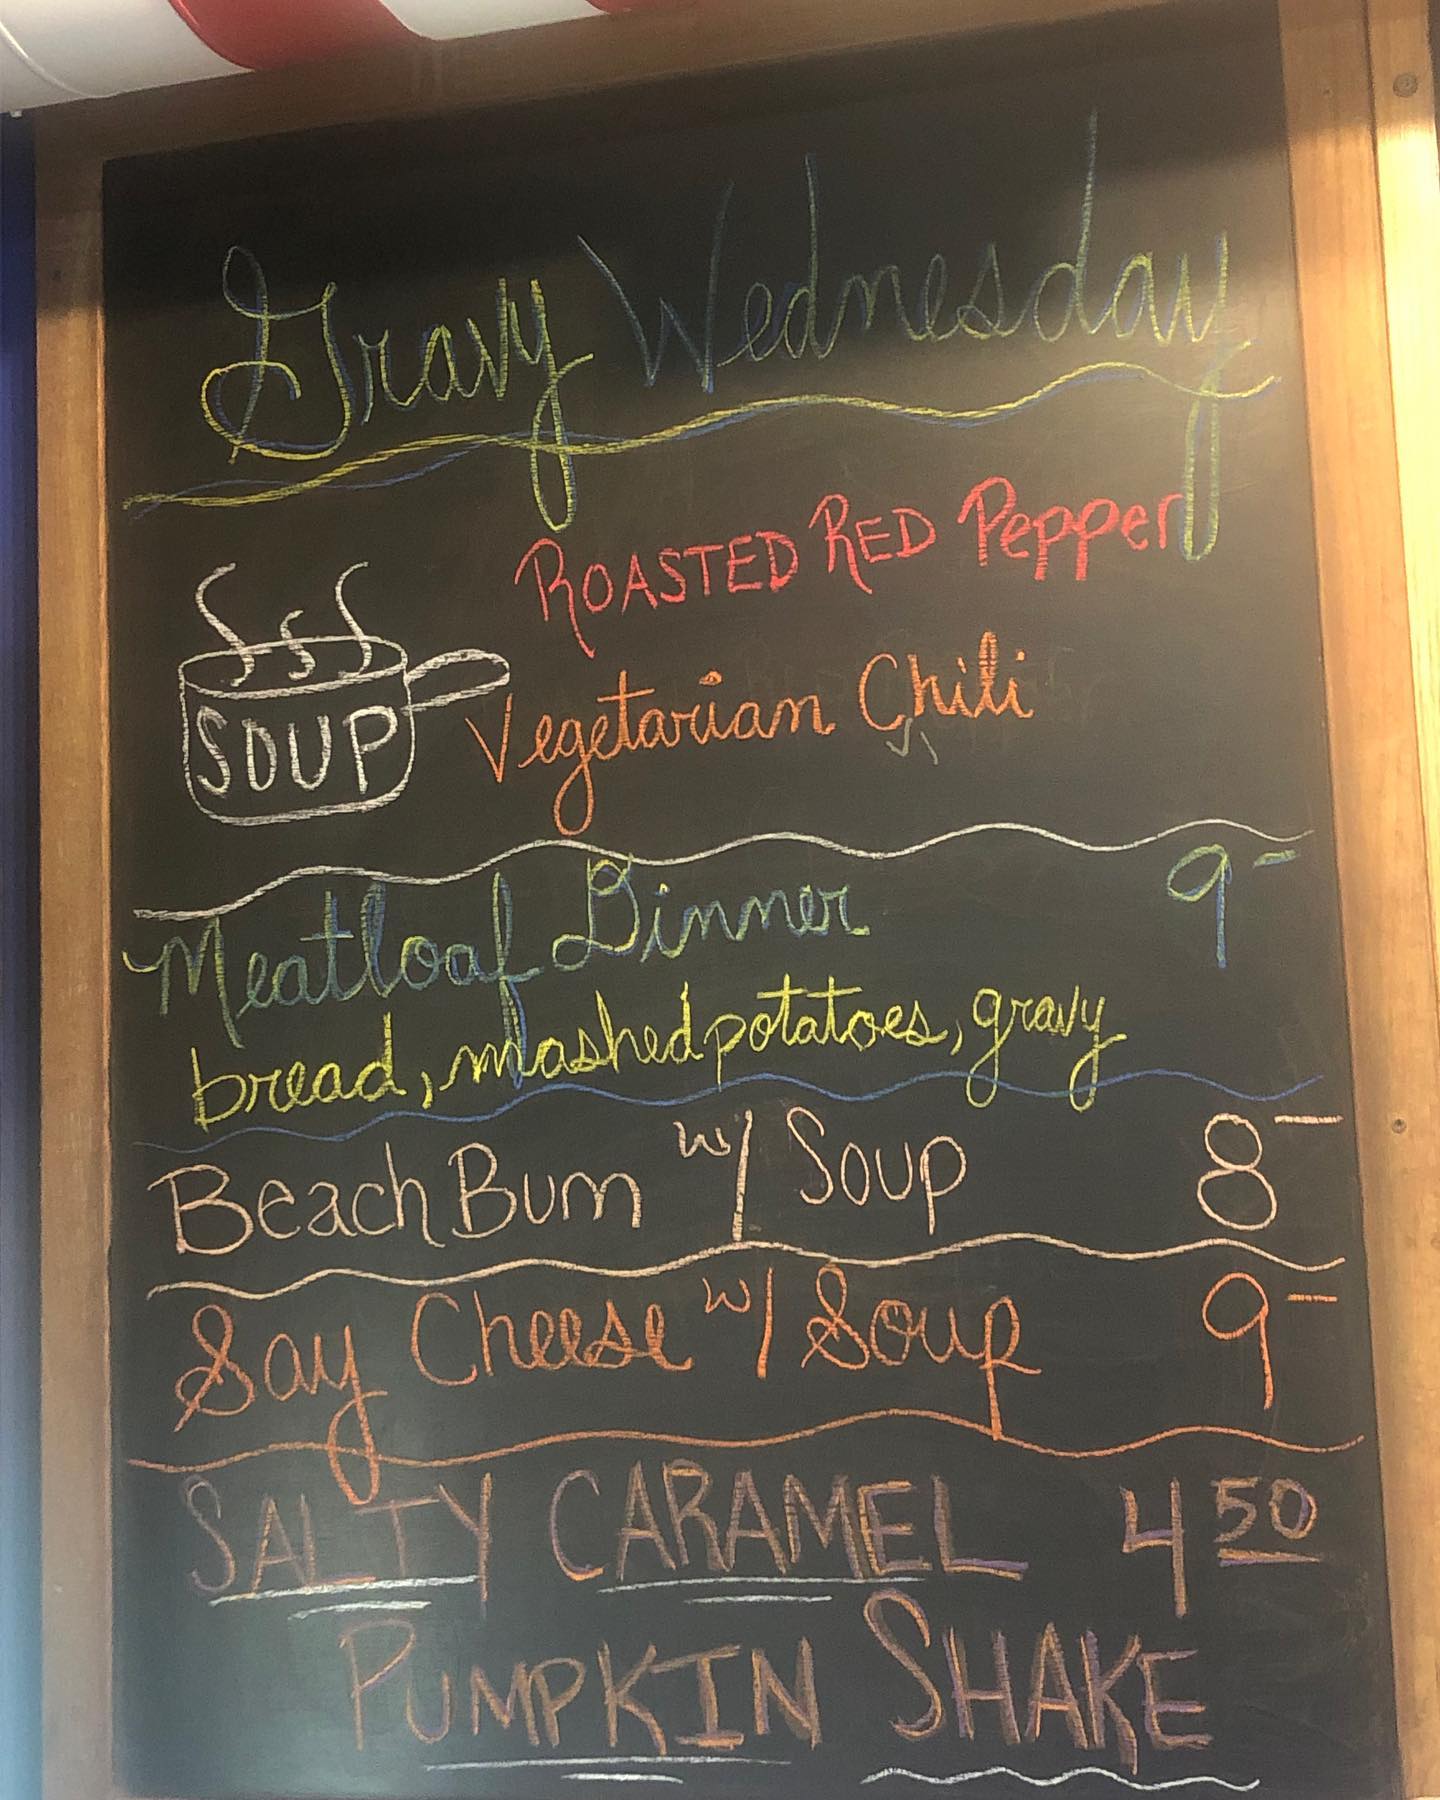 Gravy Wednesday
ROASTED RED Pepper
SOUP
Vegetarian Chili
Meatloaf Dinner 9-
bread, mashed potatoes, gravy
Beach Bum w/ Soup 8-
Say Cheese w/ Soup 9-
SALTY CARAMEL 4 50
PUMPKIN SHAKE